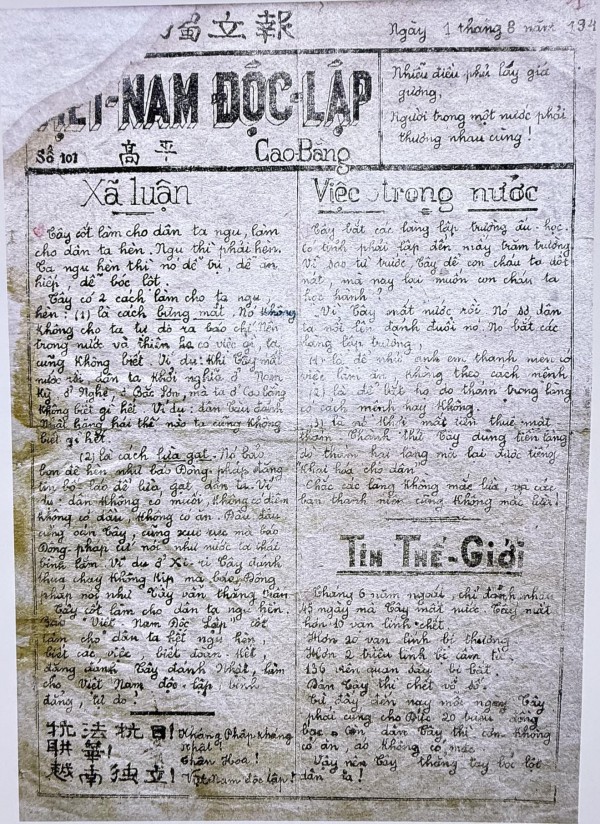 獨立報
Ngày 1 tháng 8 năm 194
VIỆT-NAM ĐỘC-LẬP
Số 101 高平 Cao-Bằng
Nhiễu điều phủ lấy giá
gương,
Người trong một nước phải
thương nhau cùng!
Xã luận
Tây cốt làm cho dân ta ngu, làm
cho dân ta hèn. Ngu thì phải hèn.
Ta ngu hèn thì nó dễ trị, dễ ăn
hiếp, dễ bóc lột.
Tây có 2 cách làm cho ta ngu
hèn: (1) là cách bưng mắt. Nó không
không cho ta tự do ra báo chí. Nên
trong nước và thiên hạ có việc gì, ta
cũng không biết. Ví dụ: khi Tây mất
nước rồi, dân ta khởi nghĩa ở Nam
Kỳ, ở Nghệ, ở Bắc Sơn, mà ta ở Cao Bằng
không biết gì hết. Ví dụ: dân Tàu đánh
Nhật hăng hái thế nào ta cũng không
biết gì hết.
(2) là cách lừa gạt. Nó bảo
bọn đê hèn như báo Đông-pháp đăng
tin bố láo để lừa gạt dân ta. Ví
dụ: dân không có muối, không có diêm
không có dầu, không có ăn. Đâu đâu
cũng oán Tây, cũng xơ xác mà báo
Đông-pháp cứ nói như nước ta thái
bình lắm. Ví dụ ở Xi-ri Tây đánh
thua chạy không kịp mà báo Đông
pháp nói như Tây vẫn thắng trận
Tây cốt làm cho dân ta ngu hèn.
Báo "Việt-Nam Độc Lập" cốt
làm cho dân ta hết ngu hèn,
biết các việc, biết đoàn kết
đặng đánh Tây đánh Nhật, làm
cho Việt Nam độc-lập, bình
đẳng, tự do!
抗法抗日! Kháng Pháp kháng
Nhật!
聯華! Thân Hoa!
越南独立! Việt-Nam độc lập!
Việc trong nước
Tây bắt các làng lập trường ấu-học.
Cố tình phải lập đến mấy trăm trường
Vì sao từ trước Tây để con cháu ta dốt
nát, mà nay lại muốn con cháu ta
học hành?
Vì Tây mất nước rồi. Nó sợ dân
ta nổi lên đánh đuổi nó. Nó bắt các
làng lập trường,
(1) là để nhử anh em thanh niên có
việc làm ăn không theo cách mệnh
(2) là để bắt họ do thám trong làng
có cách mệnh hay không.
(3) là nó khỏi mất tiền thuê mật
thám. Thành thử Tây dùng tiền làng
do thám hại làng mà lại được tiếng
khai hóa cho dân.
Chắc các làng không mắc lừa, và các
bạn thanh niên cũng không mắc lừa!
TIN THẾ-GIỚI
Tháng 6 năm ngoái, chỉ đánh nhau
45 ngày mà Tây mất nước. Tây mất
hơn 10 vạn lính chết.
Hơn 20 vạn lính bị thương
Hơn 2 triệu lính bị cầm tù.
136 viên quan sáu bị bắt.
Dân Tây thì chết vô số.
Từ đấy đến nay mỗi ngày Tây
phải cung cho Đức 20 triệu đồng
bạc. Còn dân Tây thì cơm không
có ăn, áo không có mặc
Vậy nên Tây thẳng tay bóc lột
dân ta!